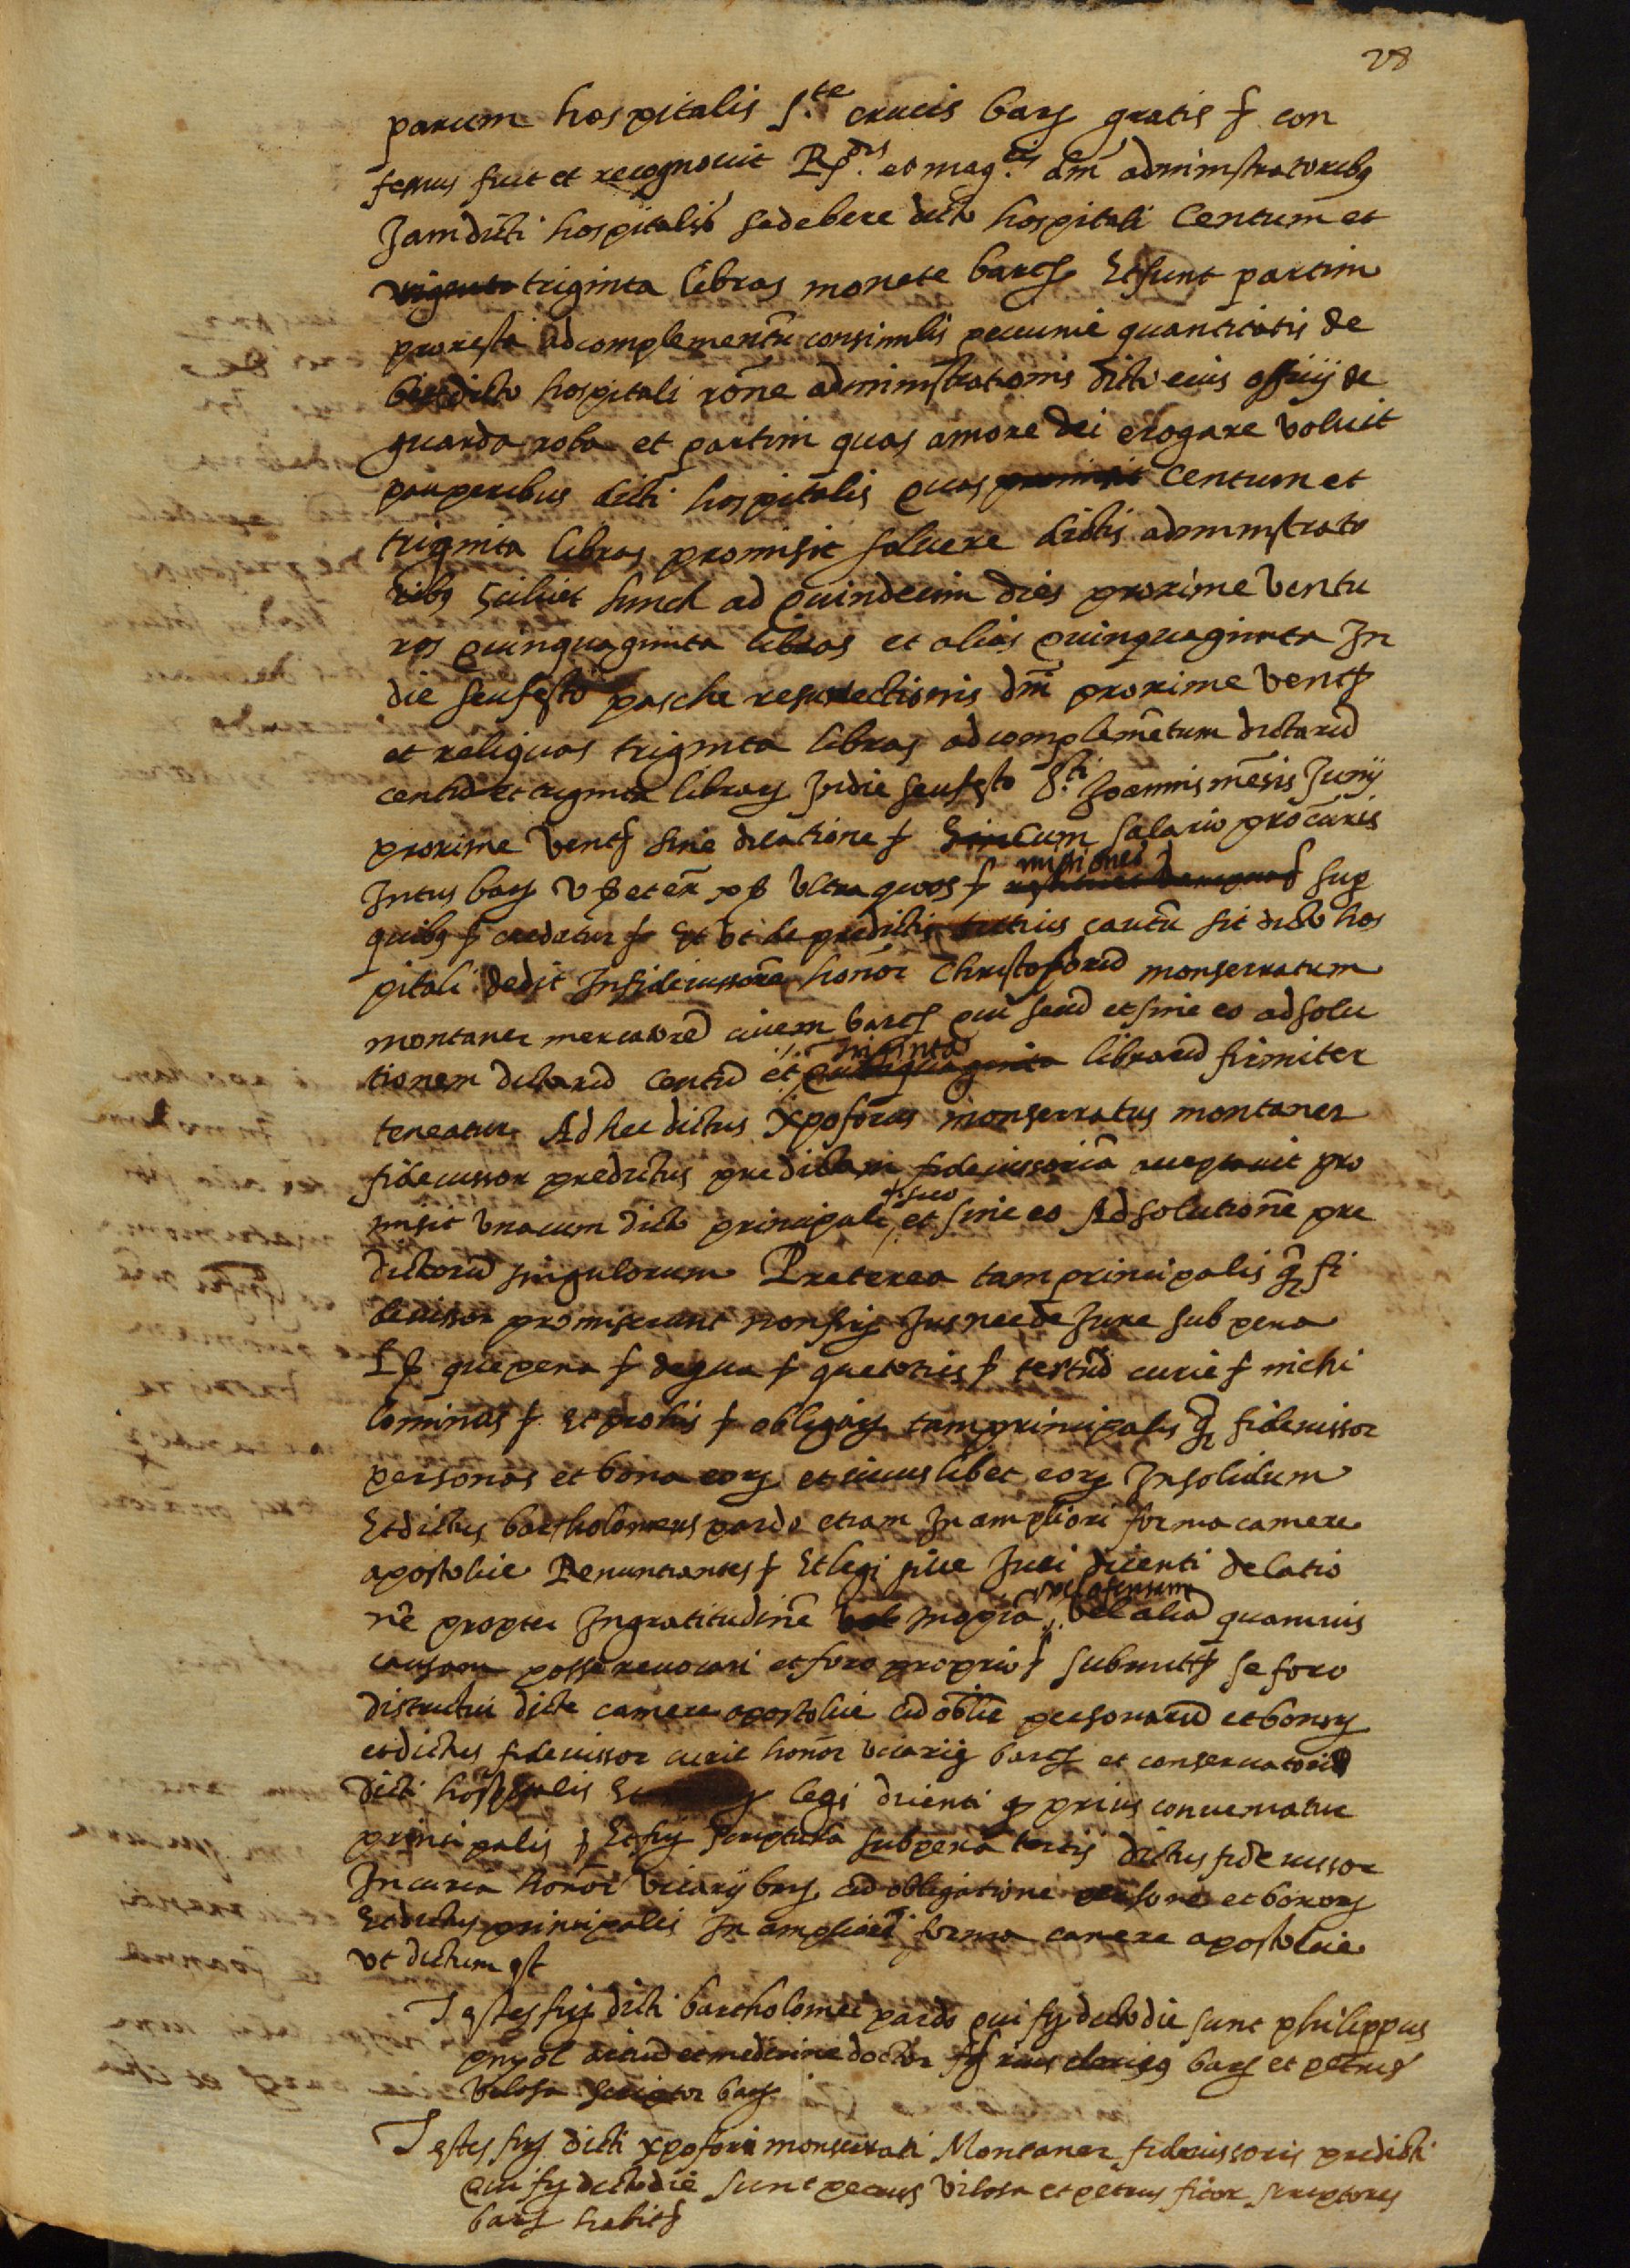 28
parum hospitalis S.te crucis barᵉ gratis etc con
fessus fuit et recognovit R.dis et mag.cis dnis administratoribus
Jamdicti hospitalis se debere dicto hospitali Centum et
viginti triginta libras monete barcᵉ Et sunt partim
pro resta ad complementu consimilis pecunie quantitatis de
dicto hospitali rone administrationis dicti eius officij de
guarda roba et partim quas amore dei erogare voluit
pauperibus dicti hospitalis Quas promisit Centum et
triginta libras promisit solvere dictis administrato
ribus scilicet hinch ad quindecim dies proxime ventu
ros quinquaginta libras et alias quinquaginta In
die seu festo pasche resurrectionis dni proxime vent
et reliquas triginta libras ad complemetum dictaru
centu et triginta librarᵉ In die seu festo S.ti Joannis mesis Junij
proxime vent sine dilatione etc Sine Cum salario procuris
Intus barᵉ v ß et ex x ß ultra quos etc missiones sup
quibus etc credatur etc Et ut de predictis tutius cautu sit dicto hos
pitali dedit In fideiussore honor Christoforu monserratum
montaner mercatore civem barcᵉ qui secu et sine eo ad solu
tionem dictaru centu et quinquaginta triginta libraru firmiter
teneatur Ad hec dictus Xpoforus monserratus montaner
fideiussor predictus predictam fideiussoria acceptavit pro
misit unacum dicto principali et sine eo Ad solutione pre
dictoru singulorum Preterea tam principalis q fi
deiussor promiserunt non fir Jus nec de Jure sub pena
L ß que pena etc de qua etc que totiens etc tertiu curie etc nichi
lominus etc Et pro his etc obligar tam principalis q fideiussor
personas et bona eor et cuiuslibet eor Insolidum
Et dictus bartholomeus pardo etiam In ampliori forma camere
apostolice Renuntiantes etc Et legi sive Juri dicenti delatio
ne propter Ingratitudine vel Inopia vel ofensam vel alia quamvis
causam posse revocari et foro proprio etc submitt se foro
districtui dicte camere apostolice cu oblie personaru et bonor
et dictus fideiussor curie honor vicarij barcᵉ et conservatoris
dicti hospitalis Et legi dicenti q prius conveniatur
principalis etc Et fir scriptura sub pena tertij dictus fideiussor
In curia honor vicarij barᵉ cu obligatione persone et bonor
Et dictus principalis In ampliori forma camere apostolice
ut dictum est
Testes fir dicti bartholomei pardo qui fir dicto die sunt philippus
artiu et medicine doctor barᵉ et petrus
vilosa scriptor barᵉ
Testes fir dicti xpofori monserrati Montaner fideiussoris predicti
qui fir dicto die sunt petrus vilosa et petrus ficor scriptores
barᵉ habit